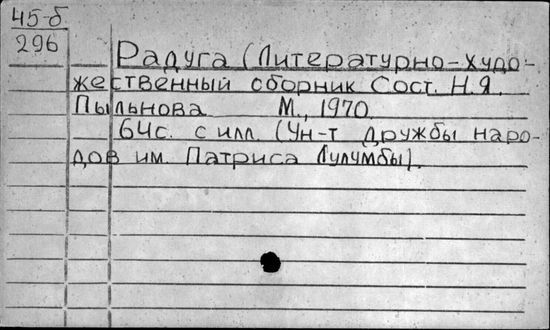 45-б
296
Радуга (Литературно-худо-
жественный сборник Сост. Н.Я.
Пыльнова М., 1970.
64с. с илл (Ун-т дружбы наро-
дов им. Патриса Лулумбы).